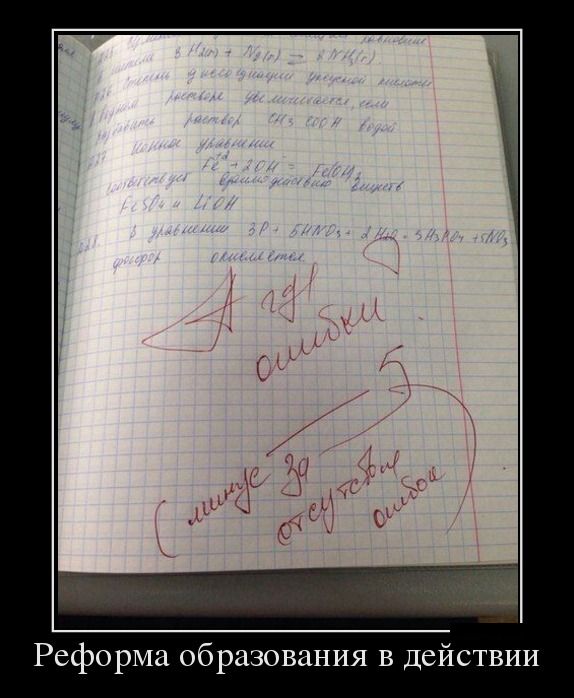 системе 3H₂(г) + N₂(г) ⇄ 2NH₃(г).
Степень диссоциации уксусной кислоты
в водном растворе увеличивается, если
разбавить раствор CH₃COOH водой
Ионное уравнение
Fe⁺² + 2OH⁻ = Fe(OH)₂
соответствует взаимодействию веществ
FeSO₄ и LiOH
В уравнении 3P + 5HNO₃ + 2H₂O = 3H₃PO₄ + 5NO
фосфор окисляется
А где
ошибки?
5
(минус за
отсутствие
ошибок)
Реформа образования в действии